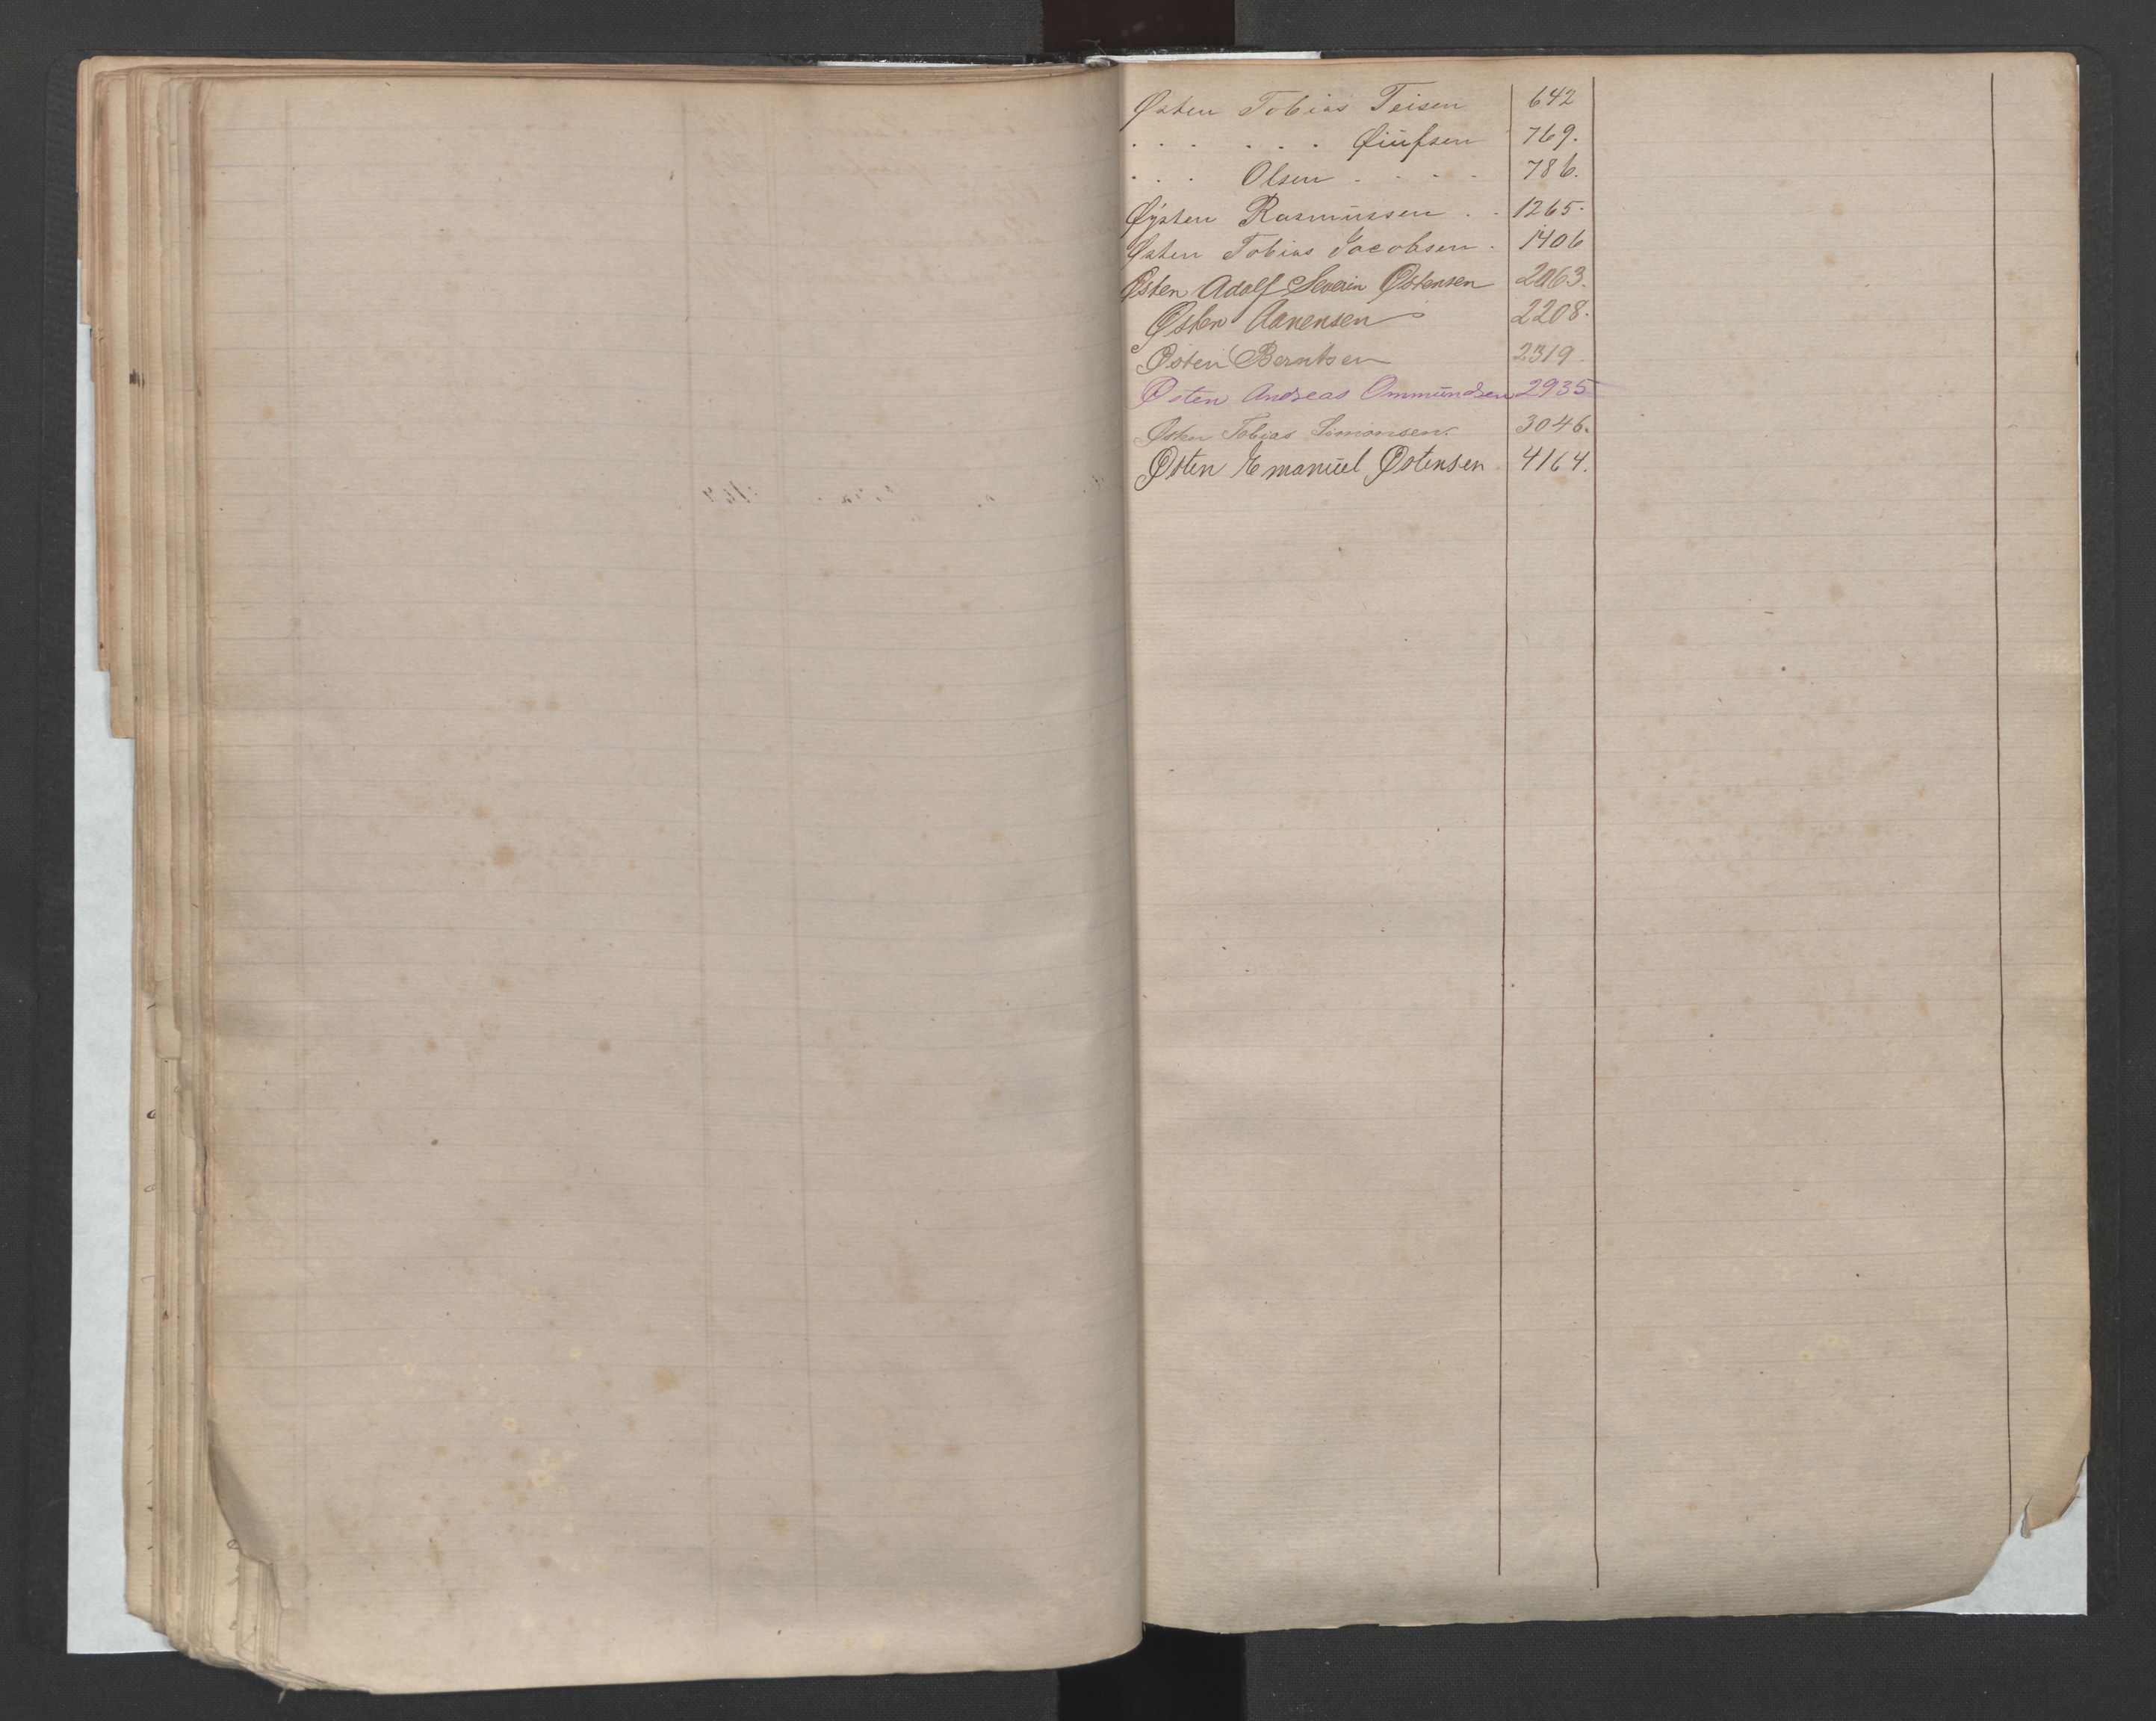 Østen Tobias Teisen 642
. . . . . . Øiufsen 769.
. . . Olsen . . . . 786.
Øysten Rasmussen . . 1265.
Østen Tobias Jacobsen . 1406
Østen Adolf Severin Østensen 2063.
Østen Aanensen 2208.
Østen Berntsen 2319.
Østen Andreas Ommundsen 2935
Østen Tobias Simonsen. 3046.
Østen Emanuel Østensen 4164.